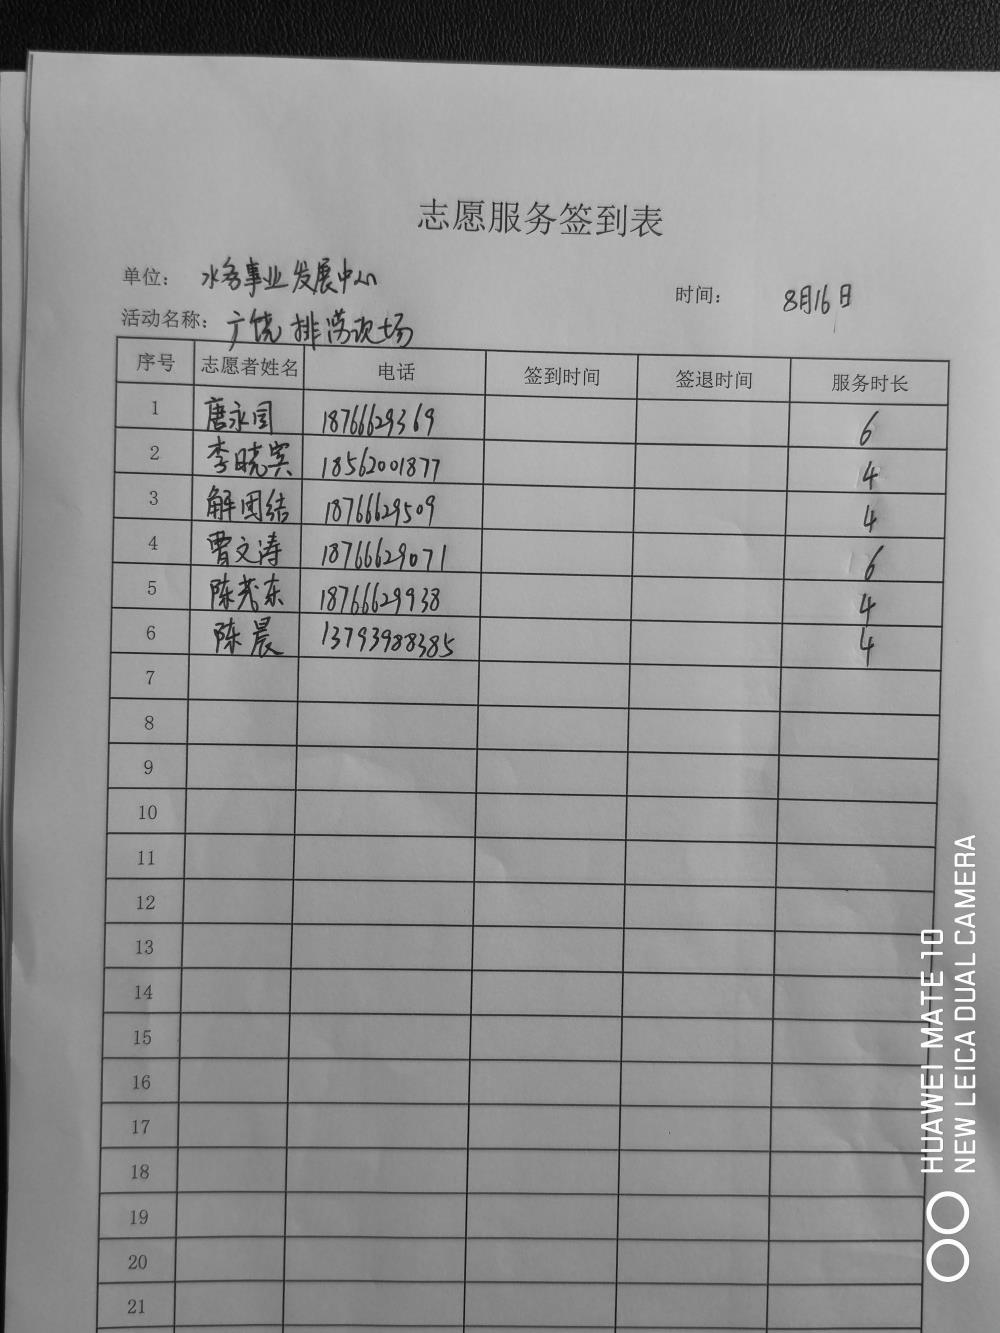 志愿服务签到表
单位： 水务事业发展中心 时间： 8月16日
活动名称： 广饶排涝现场
序号 志愿者姓名 电话 签到时间 签退时间 服务时长
1 唐永国 18766629369 6
2 李晓宾 18562001877 4
3 解团结 18766629509 4
4 曹文涛 18766629071 6
5 陈 东 18766629938 4
6 陈晨 13793988385 4
7
8
9
10
11
12
13
14
15
16
17
18
19
20
21
HUAWEI MATE 10
NEW LEICA DUAL CAMERA